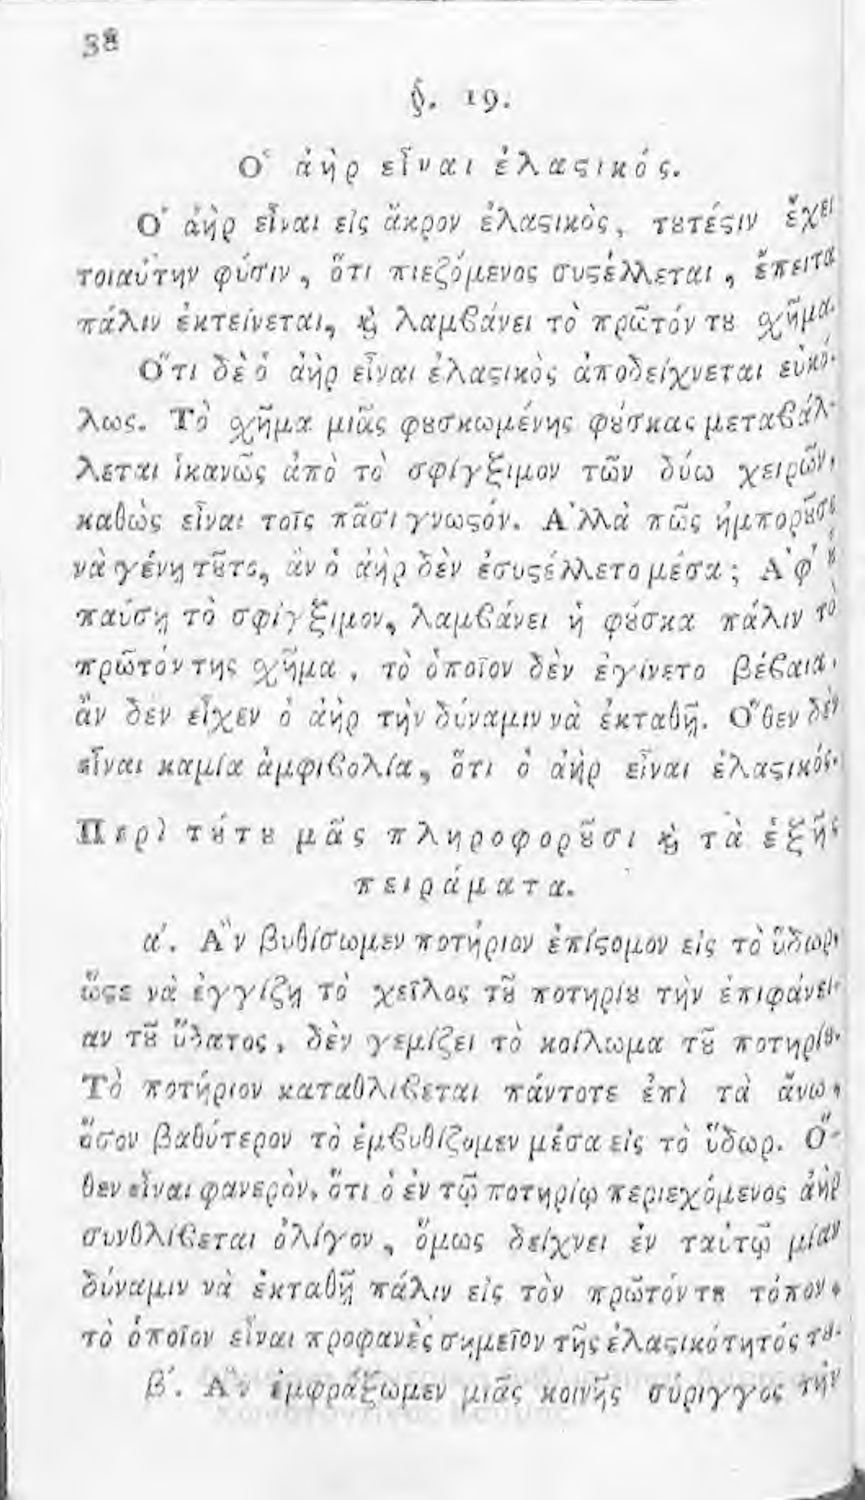 38
§. 19.
Ὁ ἀὴρ εἶναι ἐλαϛικός.
Ὁ ἀὴρ εἶναι εἰς ἄκρον ἐλαϛικὸς, τȣτέϛιν ἔχει
τοιαύτην φύσιν, ὅτι πιεζόμενος συϛέλλεται, ἔπειτα
πάλιν ἐκτείνεται, ϗ̀ λαμβάνει τὸ πρῶτόν τȣ χῆμα.
Ὅτι δὲ ὁ ἀὴρ εἶναι ἐλαϛικὸς ἀποδείχνεται εὐκό-
λως. Τὸ χῆμα μιᾶς φȣσκωμένης φȣ́σκας μεταβάλ-
λεται ἱκανῶς ἀπὸ τὸ σφίγξιμον τῶν δύω χειρῶν,
καθὼς εἶναι τοῖς πᾶσι γνωϛόν. Ἀλλὰ πῶς ἠμπορȣ͂σε
νὰ γένῃ τȣ͂το, ἂν ὁ ἀὴρ δὲν ἐσυϛέλλετο μέσα; Ἀφ' ȣ͗
παύσῃ τὸ σφίγξιμον, λαμβάνει ἡ φȣ́σκα πάλιν τὸ
πρῶτόν της χῆμα, τὸ ὁποῖον δὲν ἐγίνετο βέβαια,
ἂν δὲν εἶχεν ὁ ἀὴρ τὴν δύναμιν νὰ ἐκταθῇ. Ὅθεν δὲν
εἶναι καμία ἀμφιβολία, ὅτι ὁ ἀὴρ εἶναι ἐλαϛικός.
Περὶ τȣ́τȣ μᾶς πληροφορȣ͂σι ϗ̀ τὰ ἑξῆς
πειράματα.
α΄. Ἂν βυθίσωμεν ποτήριον ἐπίϛομον εἰς τὸ ὕδωρ,
ὥϛε νὰ ἐγγίζῃ τὸ χεῖλος τȣ͂ ποτηρίȣ τὴν ἐπιφάνει-
αν τȣ͂ ὕδατος, δὲν γεμίζει τὸ κοίλωμα τȣ͂ ποτηρίȣ.
Τὸ ποτήριον καταθλίβεται πάντοτε ἐπὶ τὰ ἄνω,
ὅσον βαθύτερον τὸ ἐμβυθίζομεν μέσα εἰς τὸ ὕδωρ. Ὅ-
θεν εἶναι φανερὸν, ὅτι ὁ ἐν τῷ ποτηρίῳ περιεχόμενος ἀὴρ
συνθλίβεται ὀλίγον, ὅμως δείχνει ἐν ταὐτῷ μίαν
δύναμιν νὰ ἐκταθῇ πάλιν εἰς τὸν πρῶτόν τȣ τόπον,
τὸ ὁποῖον εἶναι προφανὲς σημεῖον τῆς ἐλαϛικότητός τȣ.
β΄. Ἂν ἐμφράξωμεν μιᾶς κοινῆς σύριγγος τὴν